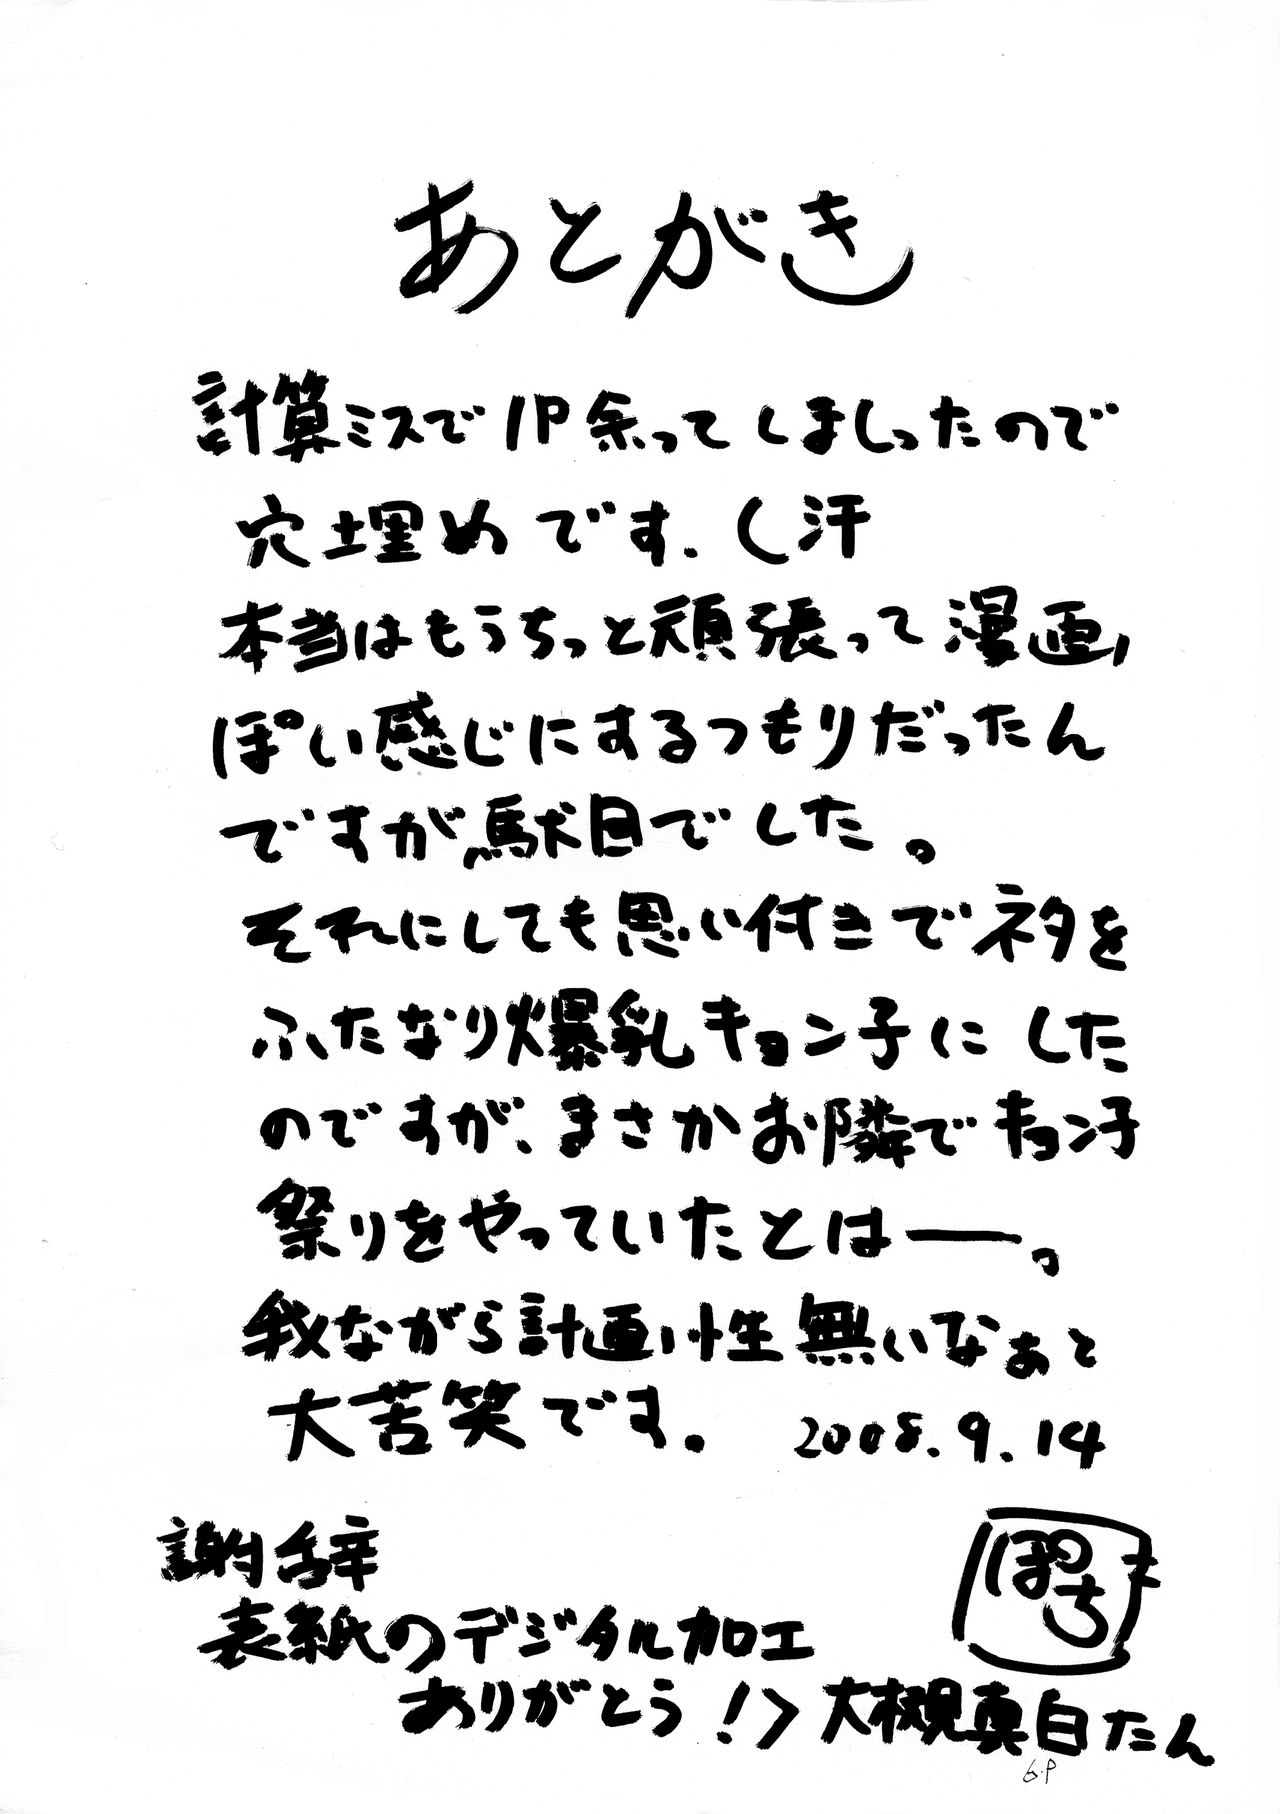 あとがき
計算ミスで1P余ってしまったので
穴埋めです．(汗
本当はもうちっと頑張って漫画っ
ぽい感じにするつもりだったん
ですが、駄目でした。
それにしても思い付きでネタを
ふたなり爆乳キョン子にした
のですが、まさかお隣でキョン子
祭りをやっていたとはー。
我ながら計画性無いなぁと
大苦笑です。 2008.9.14
謝辞
ぽっち
表紙のデジタル加工
ありがとう！＞大槻真白たん
6.P